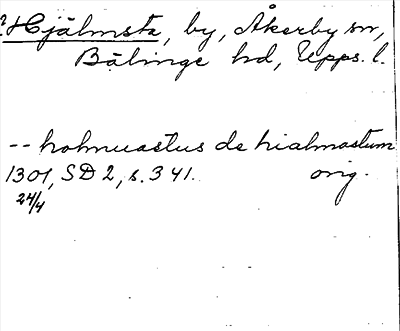 ?Hjälmsta, by, Åkerby sn,
Bälinge hd, Upps. l.
-- holmuastus de hialmastum
1301, SD 2, s. 341. orig.
24/4